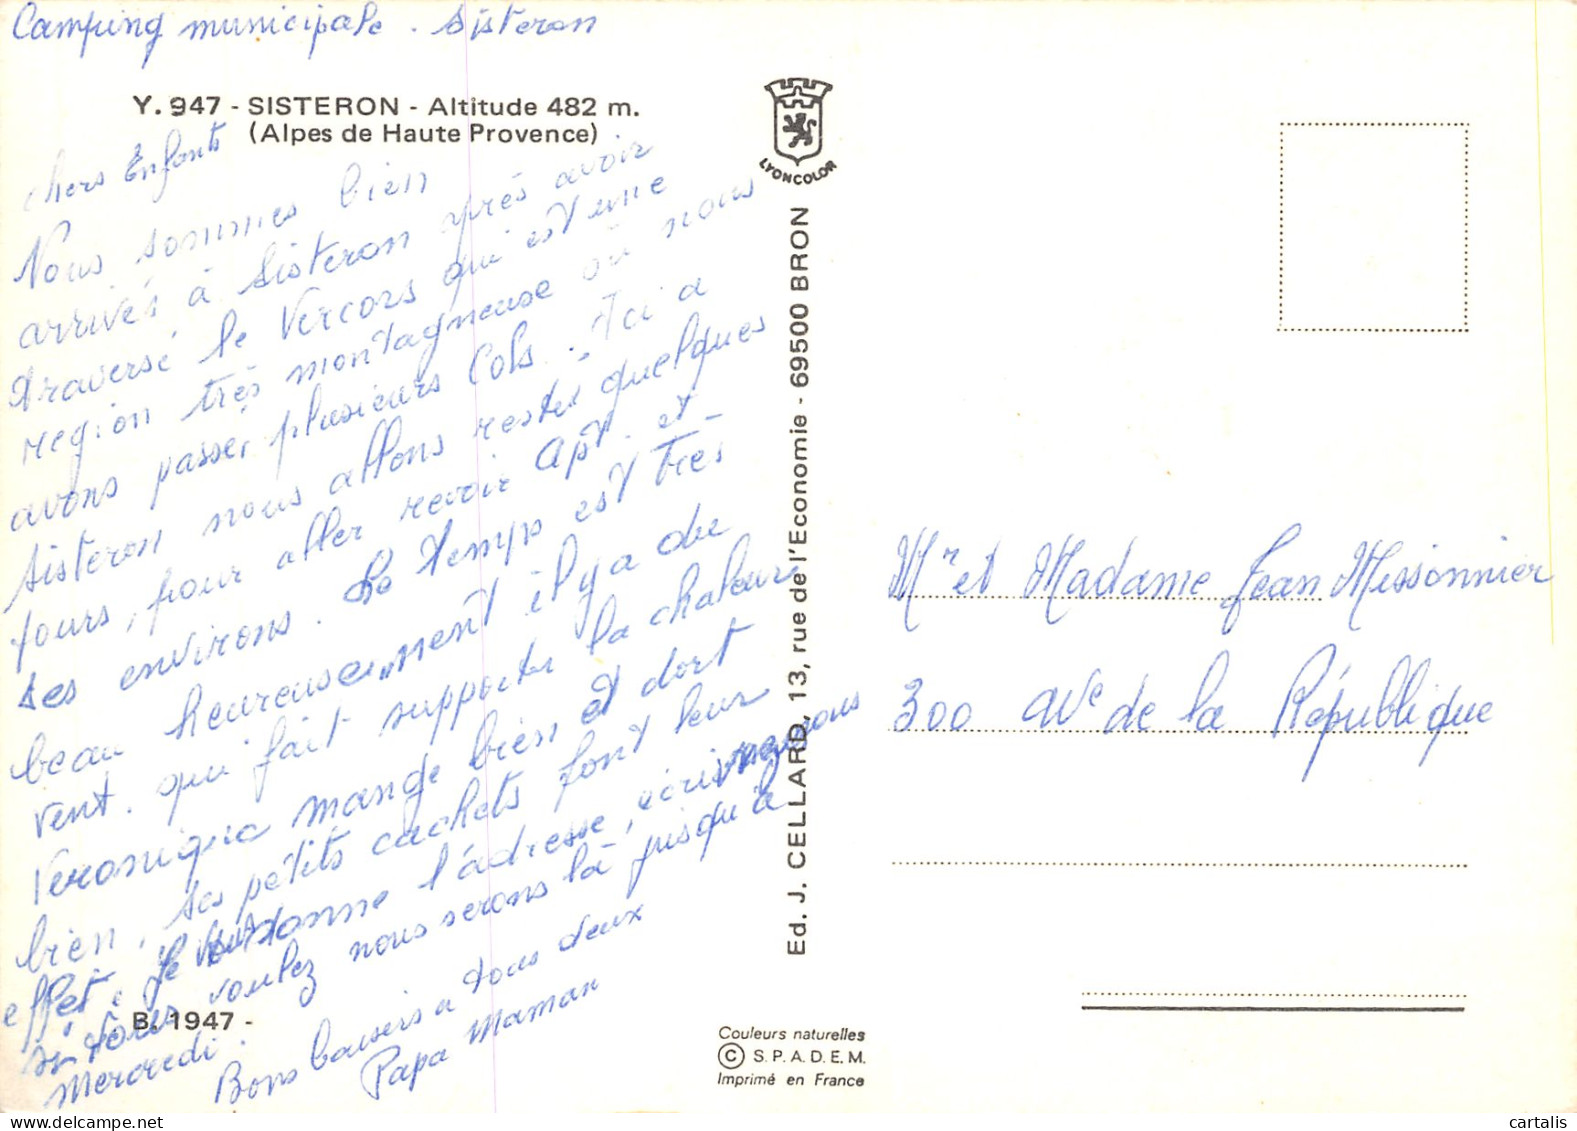 Camping municipale . Sisteron
Y. 947 - SISTERON - Altitude 482 m.
(Alpes de Haute Provence)
chers Enfants
Nous sommes bien
arrivés à Sisteron après avoir
traversé le Vercors qui est une
region très montagneuse où nous
avons passer plusieurs Cols. Ici a
Sisteron nous allons rester quelques
jours, pour aller revoir Apt. et
ses environs. Le temps est très
beau heureusement il y a du
vent. qui fait supporter la chaleur
Veronique mange bien et dort
bien, ses petits cachets font leur
effet. Je vous donne l'adresse, écrivez nous
si vous voulez nous serons là jusqu'à
Mercredi.
Bons baisers a tous deux
Papa Maman
B. 1947 -
LYONCOLOR
Ed. J. CELLARD, 13, rue de l'Economie - 69500 BRON
Couleurs naturelles
© S.P.A.D.E.M.
Imprimé en France
Mr et Madame Jean Missonnier
300 Ave de la République
cartalis